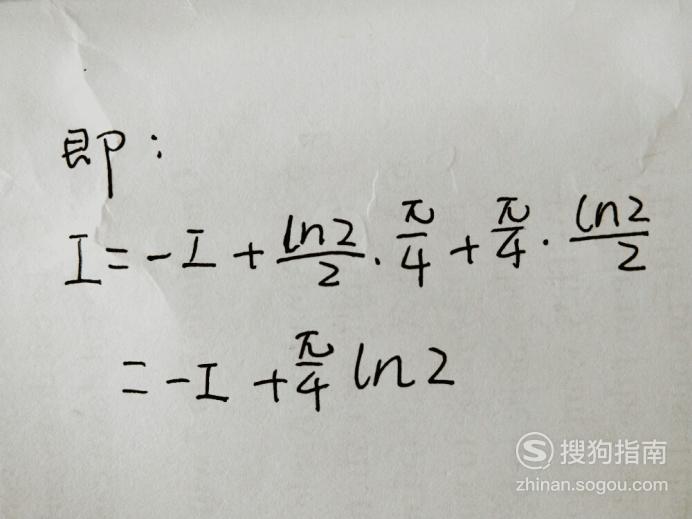 即：
I = -I + ln2/2 · π/4 + π/4 · ln2/2
= -I + π/4 ln2
搜狗指南
zhinan.sogou.com